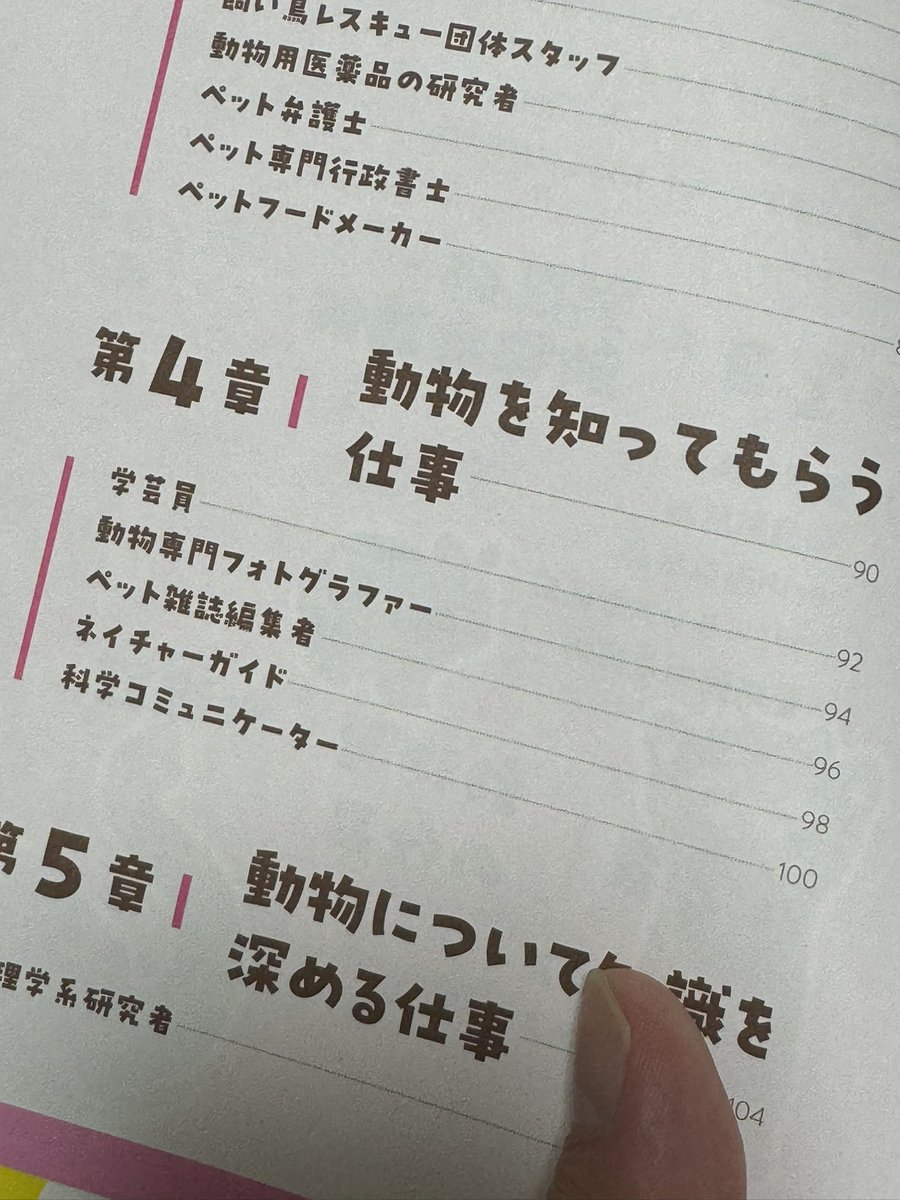 飼い鳥レスキュー団体スタッフ
動物用医薬品の研究者
ペット弁護士
ペット専門行政書士
ペットフードメーカー
第4章 動物を知ってもらう
仕事 90
学芸員 92
動物専門フォトグラファー 94
ペット雑誌編集者 96
ネイチャーガイド 98
科学コミュニケーター 100
第5章 動物について 識を
深める仕事
理学系研究者 104